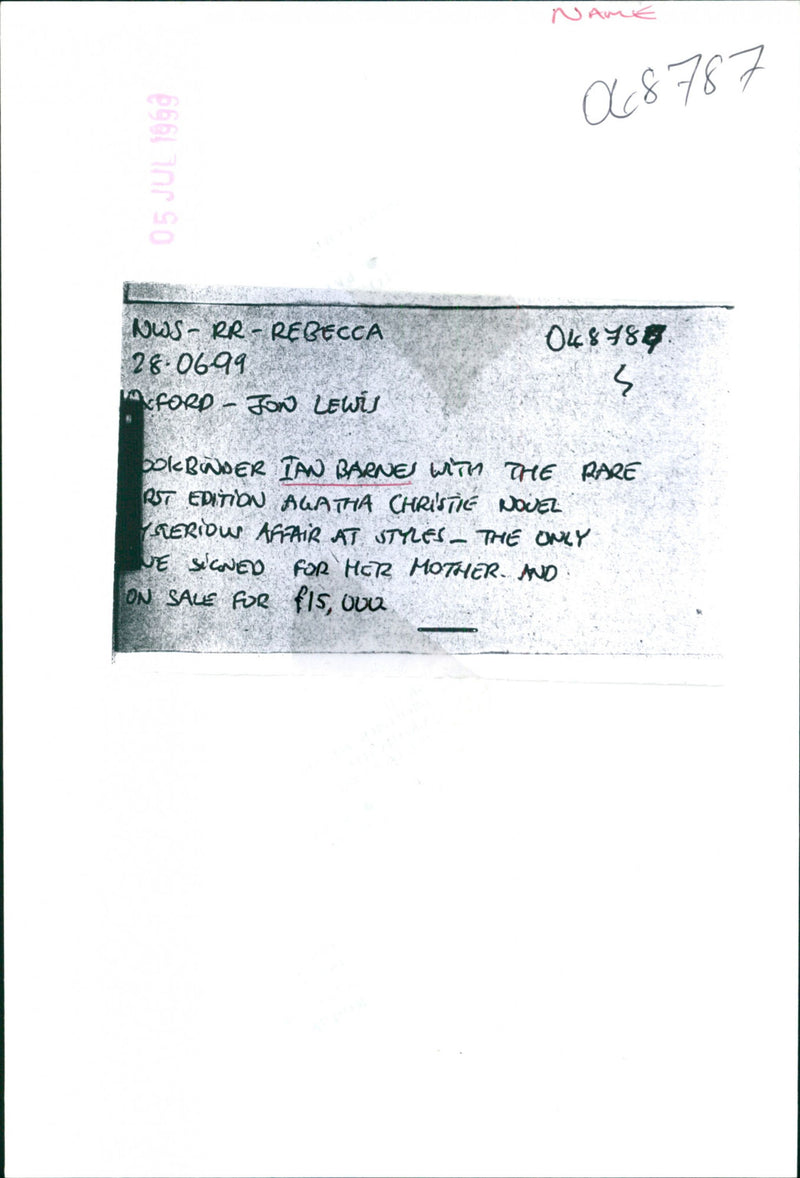 NAME
048787
05 JUL 1999
NWS - RR - REBECCA
048787
28.06.99
OXFORD - JON LEWIS
OOKBINDER IAN BARNES WITH THE RARE
RST EDITION AGATHA CHRISTIE NOVEL
YSTERIOUS AFFAIR AT STYLES - THE ONLY
NE SIGNED FOR HER MOTHER. AND
ON SALE FOR £15,000